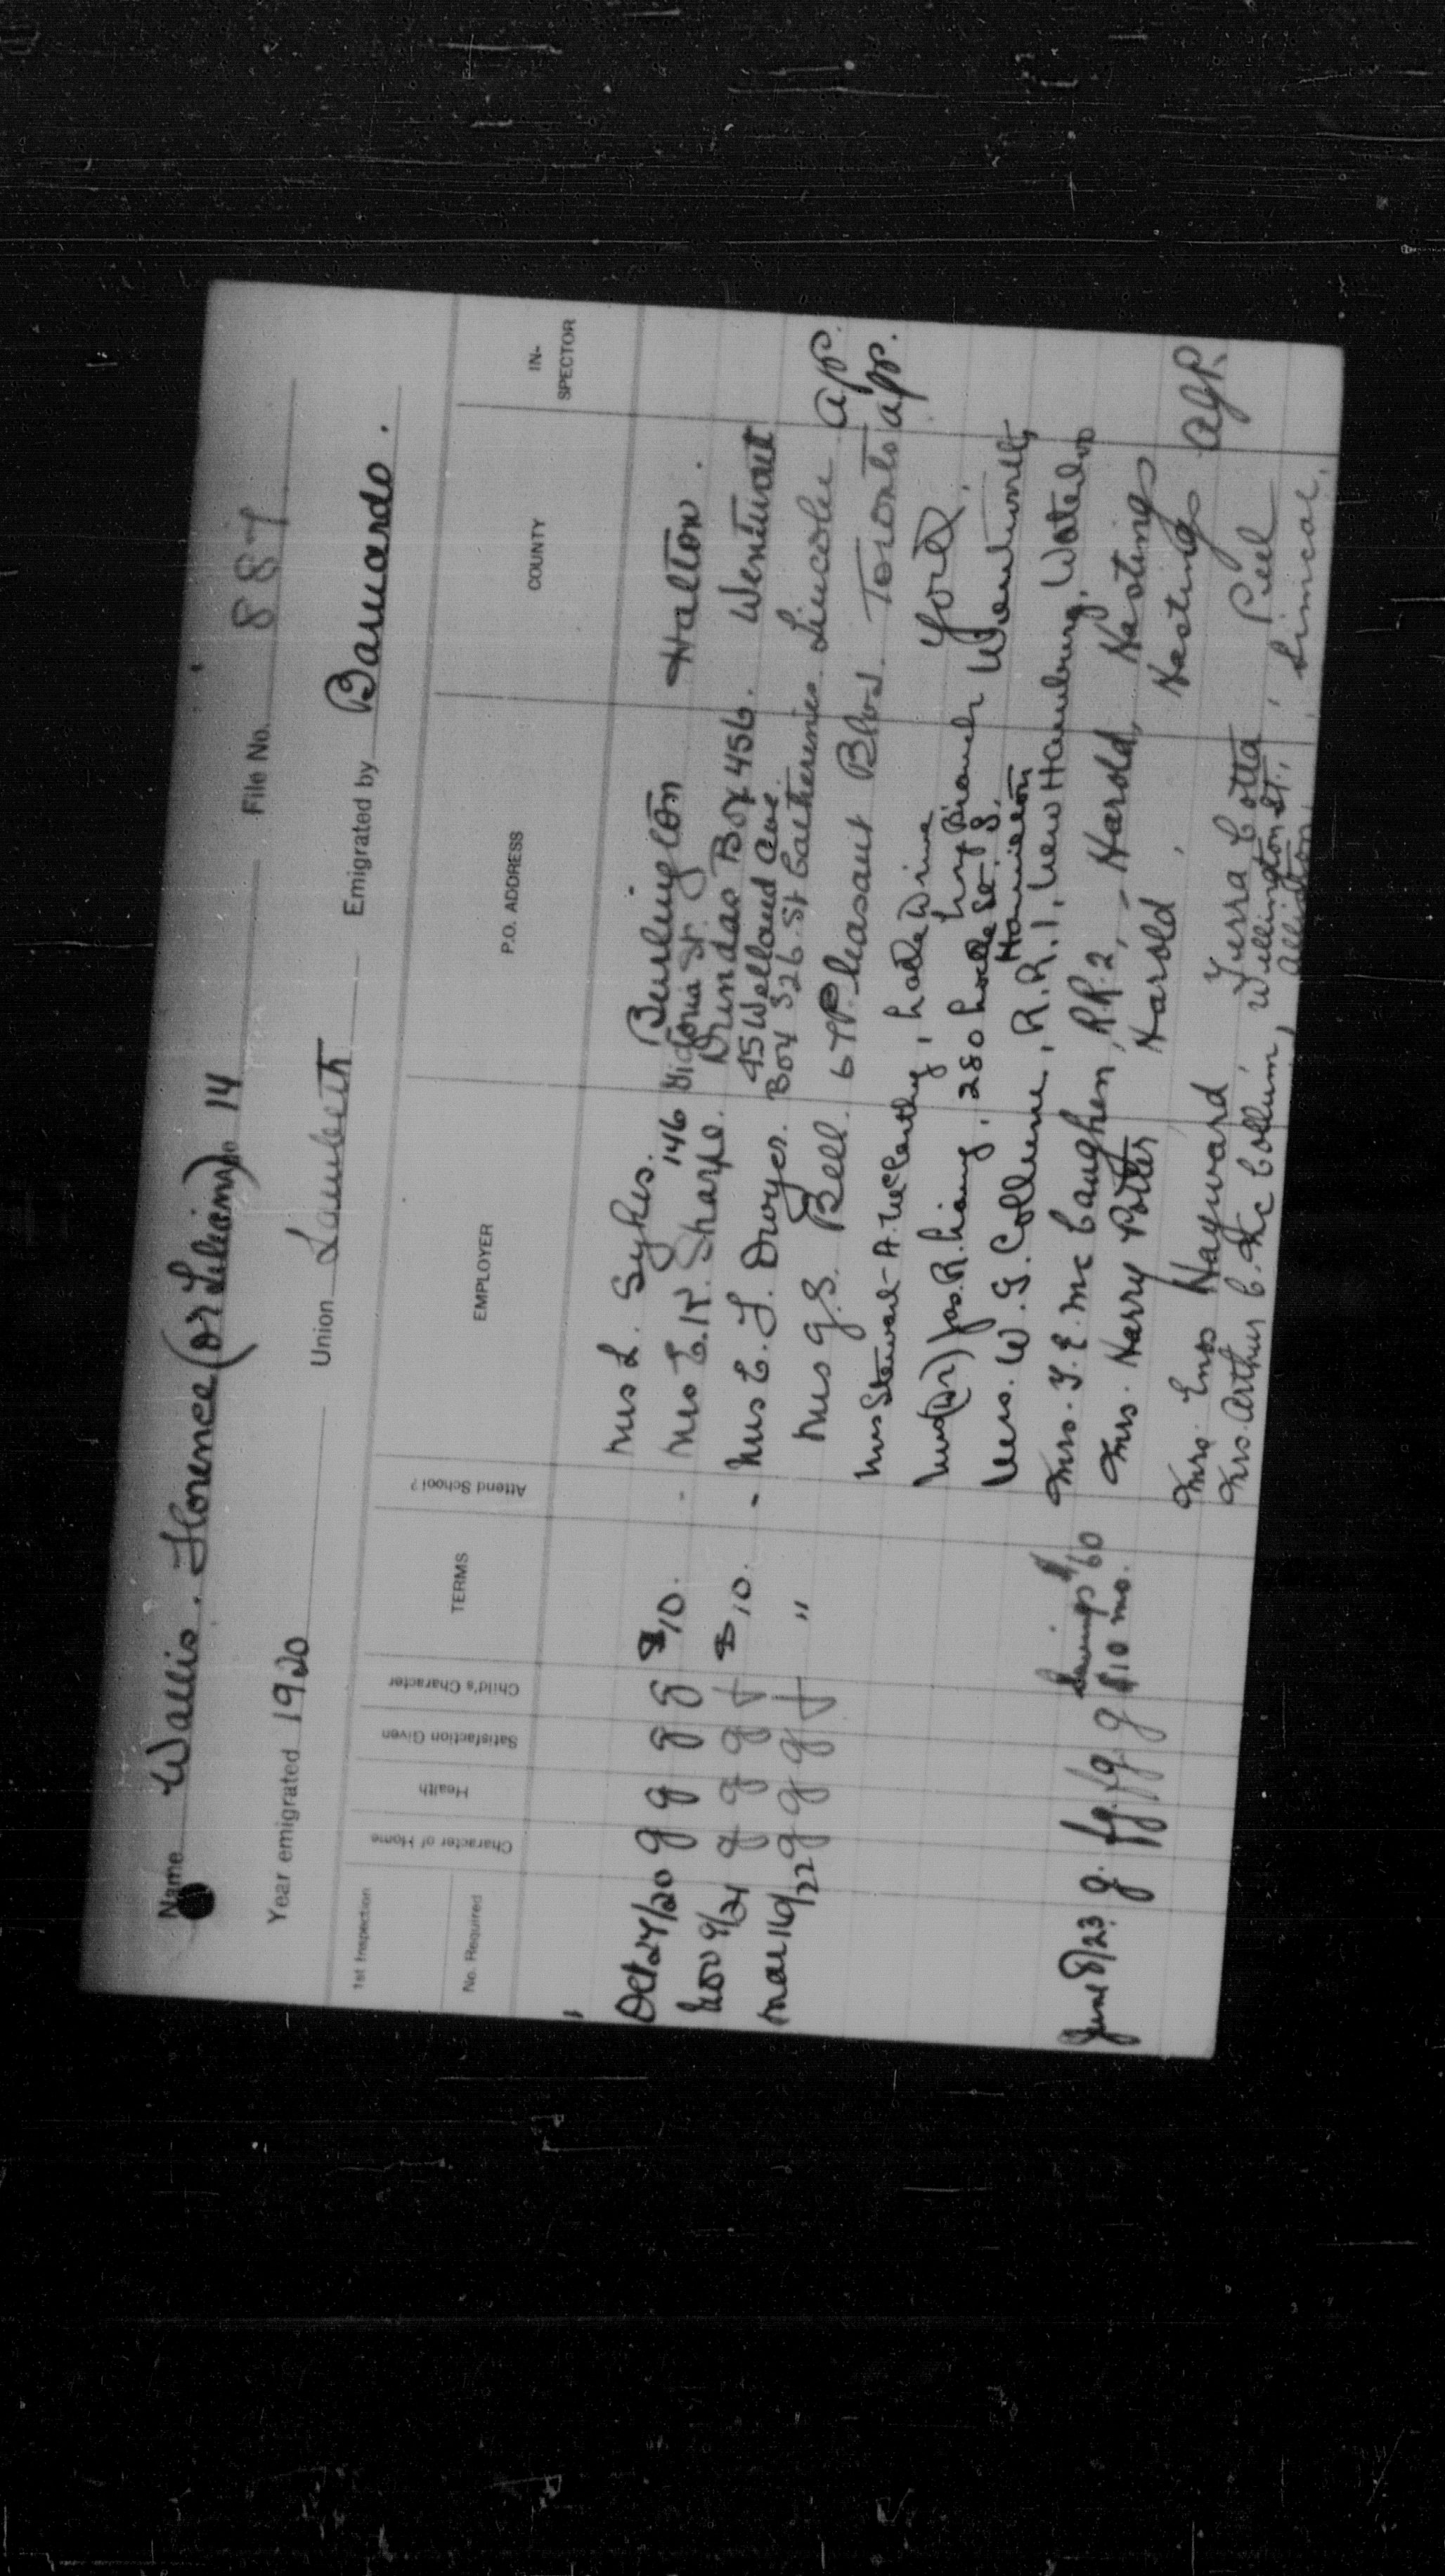 Name Wallis. Florence (or Lilian) Age 14 File No. 887
Year emigrated 1920 Union Lambeth Emigrated by Barnardo.
1st Inspection
No. Required
Character of Home
Health
Satisfaction Given
Child's Character
TERMS
Attend School?
EMPLOYER
P.O. ADDRESS
COUNTY
IN-SPECTOR
Mrs L. Sykes. Burlington Halton.
Oct 27/20 g g g g $10. - Mrs E.K. Sharpe. 146 Victoria St. Dundas Box 456. Wentworth
Nov 9/21 g g g f $10. - Mrs E. J. Dwyer. 45 Welland Ave. Box 326. St Catherines. Lincoln app.
Mar 16/22 g g g f " Mrs G.S. Bell. 67 Pleasant Blvd. Toronto app.
Mrs Stewart - A. McCarthy, York.
Mrs (Dr) Jas. R. 280 St. S. Hamilton Wentworth
Mrs. W. G. Collene, R.R.1, New Hamburg, Waterloo
Mrs. T. E. McCaughen, R.R.2, - Harold, Hastings
June 8/23 g. fg. fg g Savings $60 $10 mo. Mrs. Harry Potter Harold, Hastings AGP.
Mrs. Enos Hayward, Terra Cotta, Peel
Mrs. Arthur C. McCollum, Wellington St., Alliston, Simcoe,